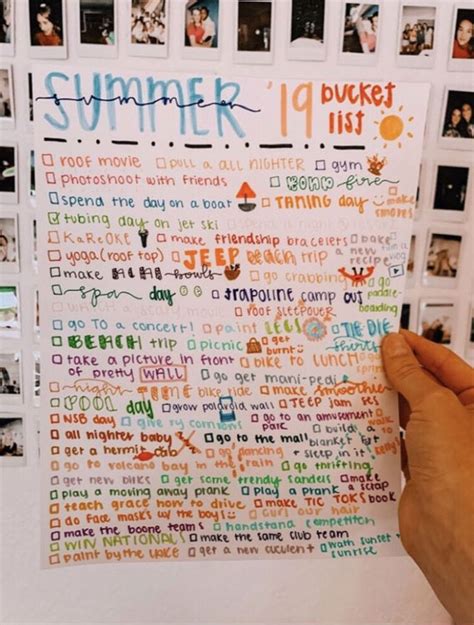 SUMMER '19 bucket list
summer
roof movie pull a all nighter gym
photoshoot with friends bonfire
spend the day on a boat TANING day make smores
tubing day on jet ski
KaReOKE make friendship bracelets bake a new recipe
yoga (roof top) JEEP BEACH trip
make bowls go crabbing go paddle boarding
spa day trapoline camp out
a scary movie roof sleepover
go to a concert! paint LEGS TIE DIE shirts
BEACH trip picnic get burnt
take a picture in front of pretty WALL bike to lunch
go get mani-pedi
night TIME bike ride make smoothies
POOL day grow polaroid wall JEEP jam ses
NSB day go to an amusement park
all nighter baby go to the mall build a blanket fort + sleep in it
get a hermit crab go dancing
go to volcano bay in the rain go thrifting
get new birks get some trendy sandels make a scrap book
play a moving away prank play a prank
teach grace how to drive make TIC TOKS
do face masks w/ the boys curl our hair
make the boone team handstand competitcn
WIN NATIONALS make the same club team
paint by the lake get a new cuculent watch sunset + sunrise